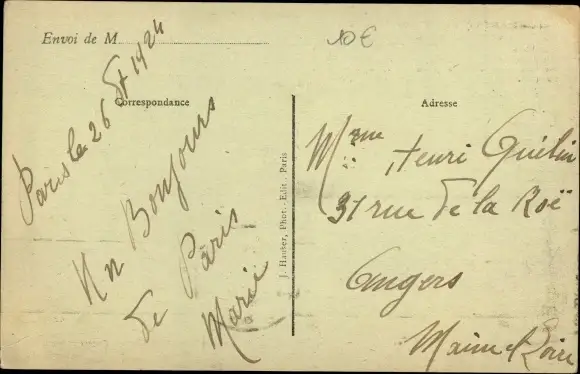 Envoi de M
10€
Paris le 26 8t 1924
Correspondance
Un Bonjours
de Paris
Marie
J. Hauser, Phot.-Edit., Paris
Adresse
Mme Henri Guélin
31 rue de la Roë
Angers
Maine et Loire